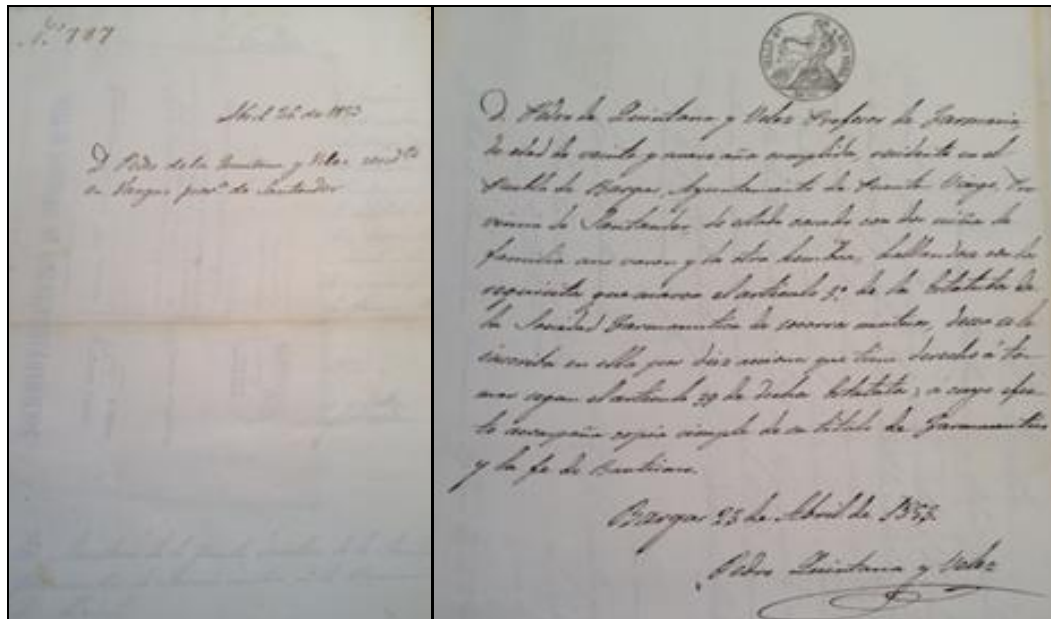 N.º 787
Abril 26 de 1853
D. Pedro de la Quintana y Velez resid.te
en Vargas prov.a de Santander
D. Pedro de Quintana y Velez Profesor de Farmacia,
de edad de veinte y nueve años cumplidos, residente en el
Pueblo de Bargas, Ayuntamiento de Puente Viesgo, Pro
vincia de Santander de estado casado con dos niños de
familia uno varon y la otra hembra, hallandose con los
requisitos que marca el artículo 5.º de los Estatutos de
la Sociedad Farmaceutica de socorros mutuos, desea se le
inscriba en ella por diez acciones que tiene derecho á to
mar segun el artículo 29 de dichos Estatutos; a cuyo efec
to acompaña copia simple de su título de Farmaceutico
y la fe de Bautismo.
Bargas 23 de Abril de 1853.
Pedro Quintana y Velez